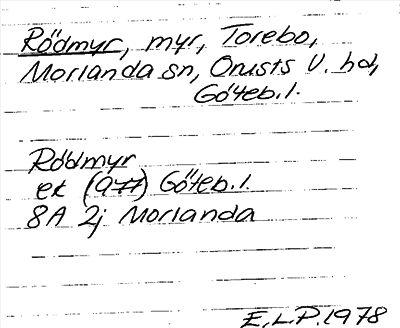 Rödmyr, myr, Torebo,
Morlanda sn, Orusts V. hd,
Göteb. l.
Rödmyr
ek (977) Göteb. l.
8A 2j Morlanda
E.L.P. 1978